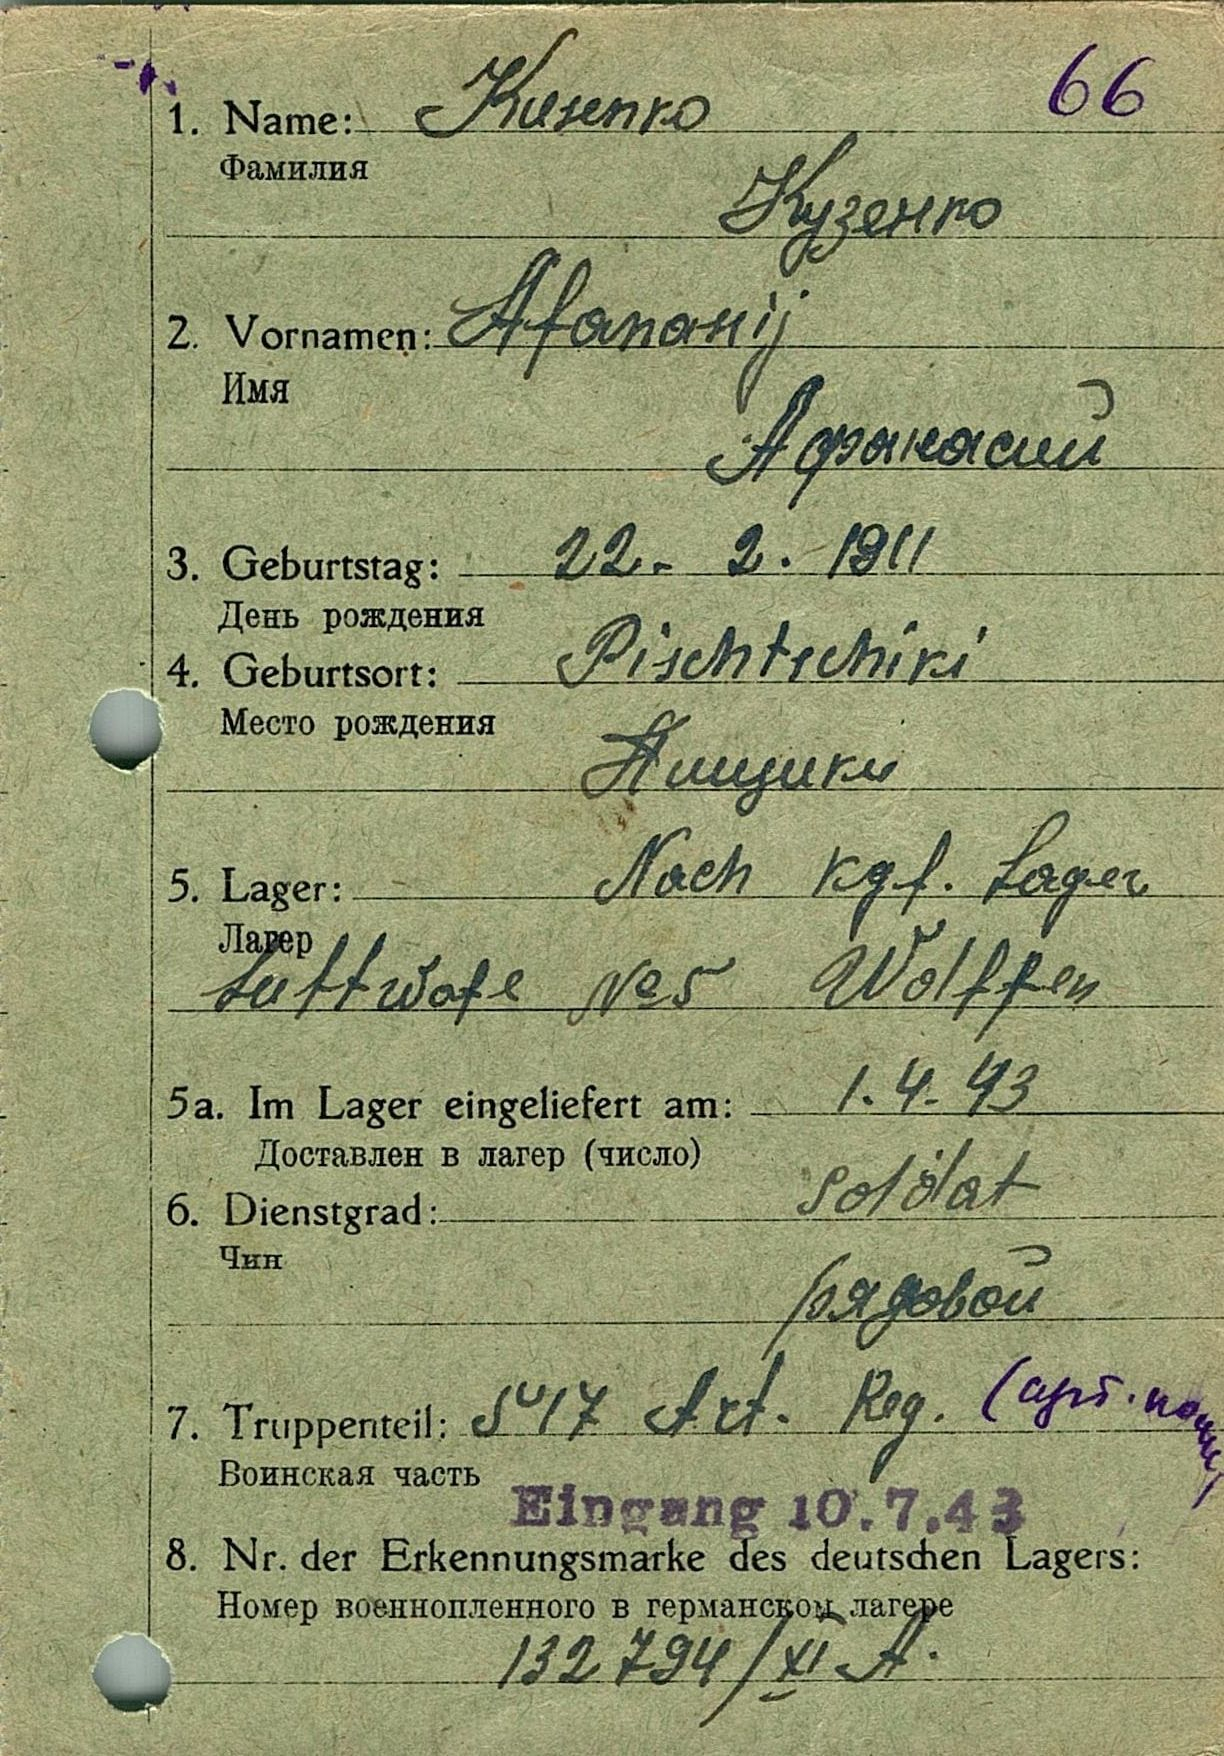 66
1. Name: Kusenko
Фамилия
Кузенко
2. Vornamen: Afanasij
Имя
Афанасий
3. Geburtstag: 22. 2. 1911
День рождения
4. Geburtsort: Pischtschiki
Место рождения
Пищики
5. Lager: Nach Kgf. Lager
Лагер
Luftwafe № 5 Wolffen
5a. Im Lager eingeliefert am: 1. 4. 43
Доставлен в лагер (число)
6. Dienstgrad: Soldat
Чин
рядовой
7. Truppenteil: 547 Art. Reg. (арт.
Воинская часть
Eingang 10.7.43
8. Nr. der Erkennungsmarke des deutschen Lagers:
Номер военнопленного в германском лагере
132794/XI A.